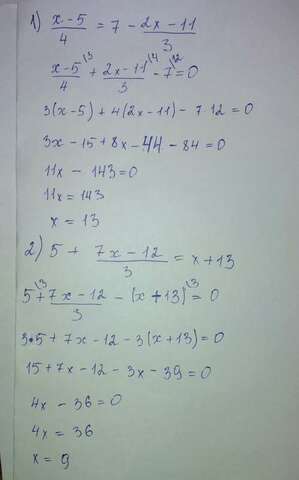 1) \frac{x-5}{4} = 7 - \frac{2x-11}{3}
\frac{x-5}{4}^{\backslash 3} + \frac{2x-11}{3}^{\backslash 4} - 7^{\backslash 12} = 0
3(x-5) + 4(2x-11) - 7·12 = 0
3x - 15 + 8x - 44 - 84 = 0
11x - 143 = 0
11x = 143
x = 13
2) 5 + \frac{7x-12}{3} = x + 13
5^{\backslash 3} + \frac{7x-12}{3} - (x+13)^{\backslash 3} = 0
3·5 + 7x - 12 - 3(x+13) = 0
15 + 7x - 12 - 3x - 39 = 0
4x - 36 = 0
4x = 36
x = 9